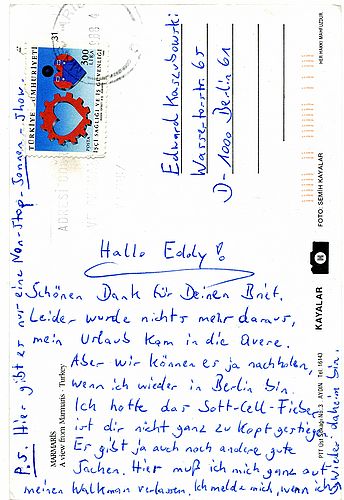 Hallo Eddy!
Schönen Dank für Deinen Brief.
Leider wurde nichts mehr daraus,
mein Urlaub kam in die Quere.
Aber wir können es ja nachholen,
wenn ich wieder in Berlin bin.
Ich hoffe das Soft-Cell-Fieber
ist dir nicht ganz zu Kopf gestiegen.
Es gibt ja auch noch andere gute
Sachen. Hier muß ich mich ganz auf
meinen Walkman verlassen. Ich melde mich, wenn ich
wieder daheim bin.
P.S. Hier gibt es nur eine Non-Stop-Sonnen-Show.
Edward Kaszubowski
Wassertorstr. 65
D-1000 Berlin 61
TÜRKİYE CUMHURİYETİ
300
LİRA
POSTA
İŞÇİ SAĞLIĞI VE İŞ GÜVENLİĞİ
31
MARMARİS
A view from Marmaris Turkey
KAYALAR
AYDIN Tel. 16143
FOTO: SEMİH KAYALAR
HER HAKKI MAHFUZDUR.